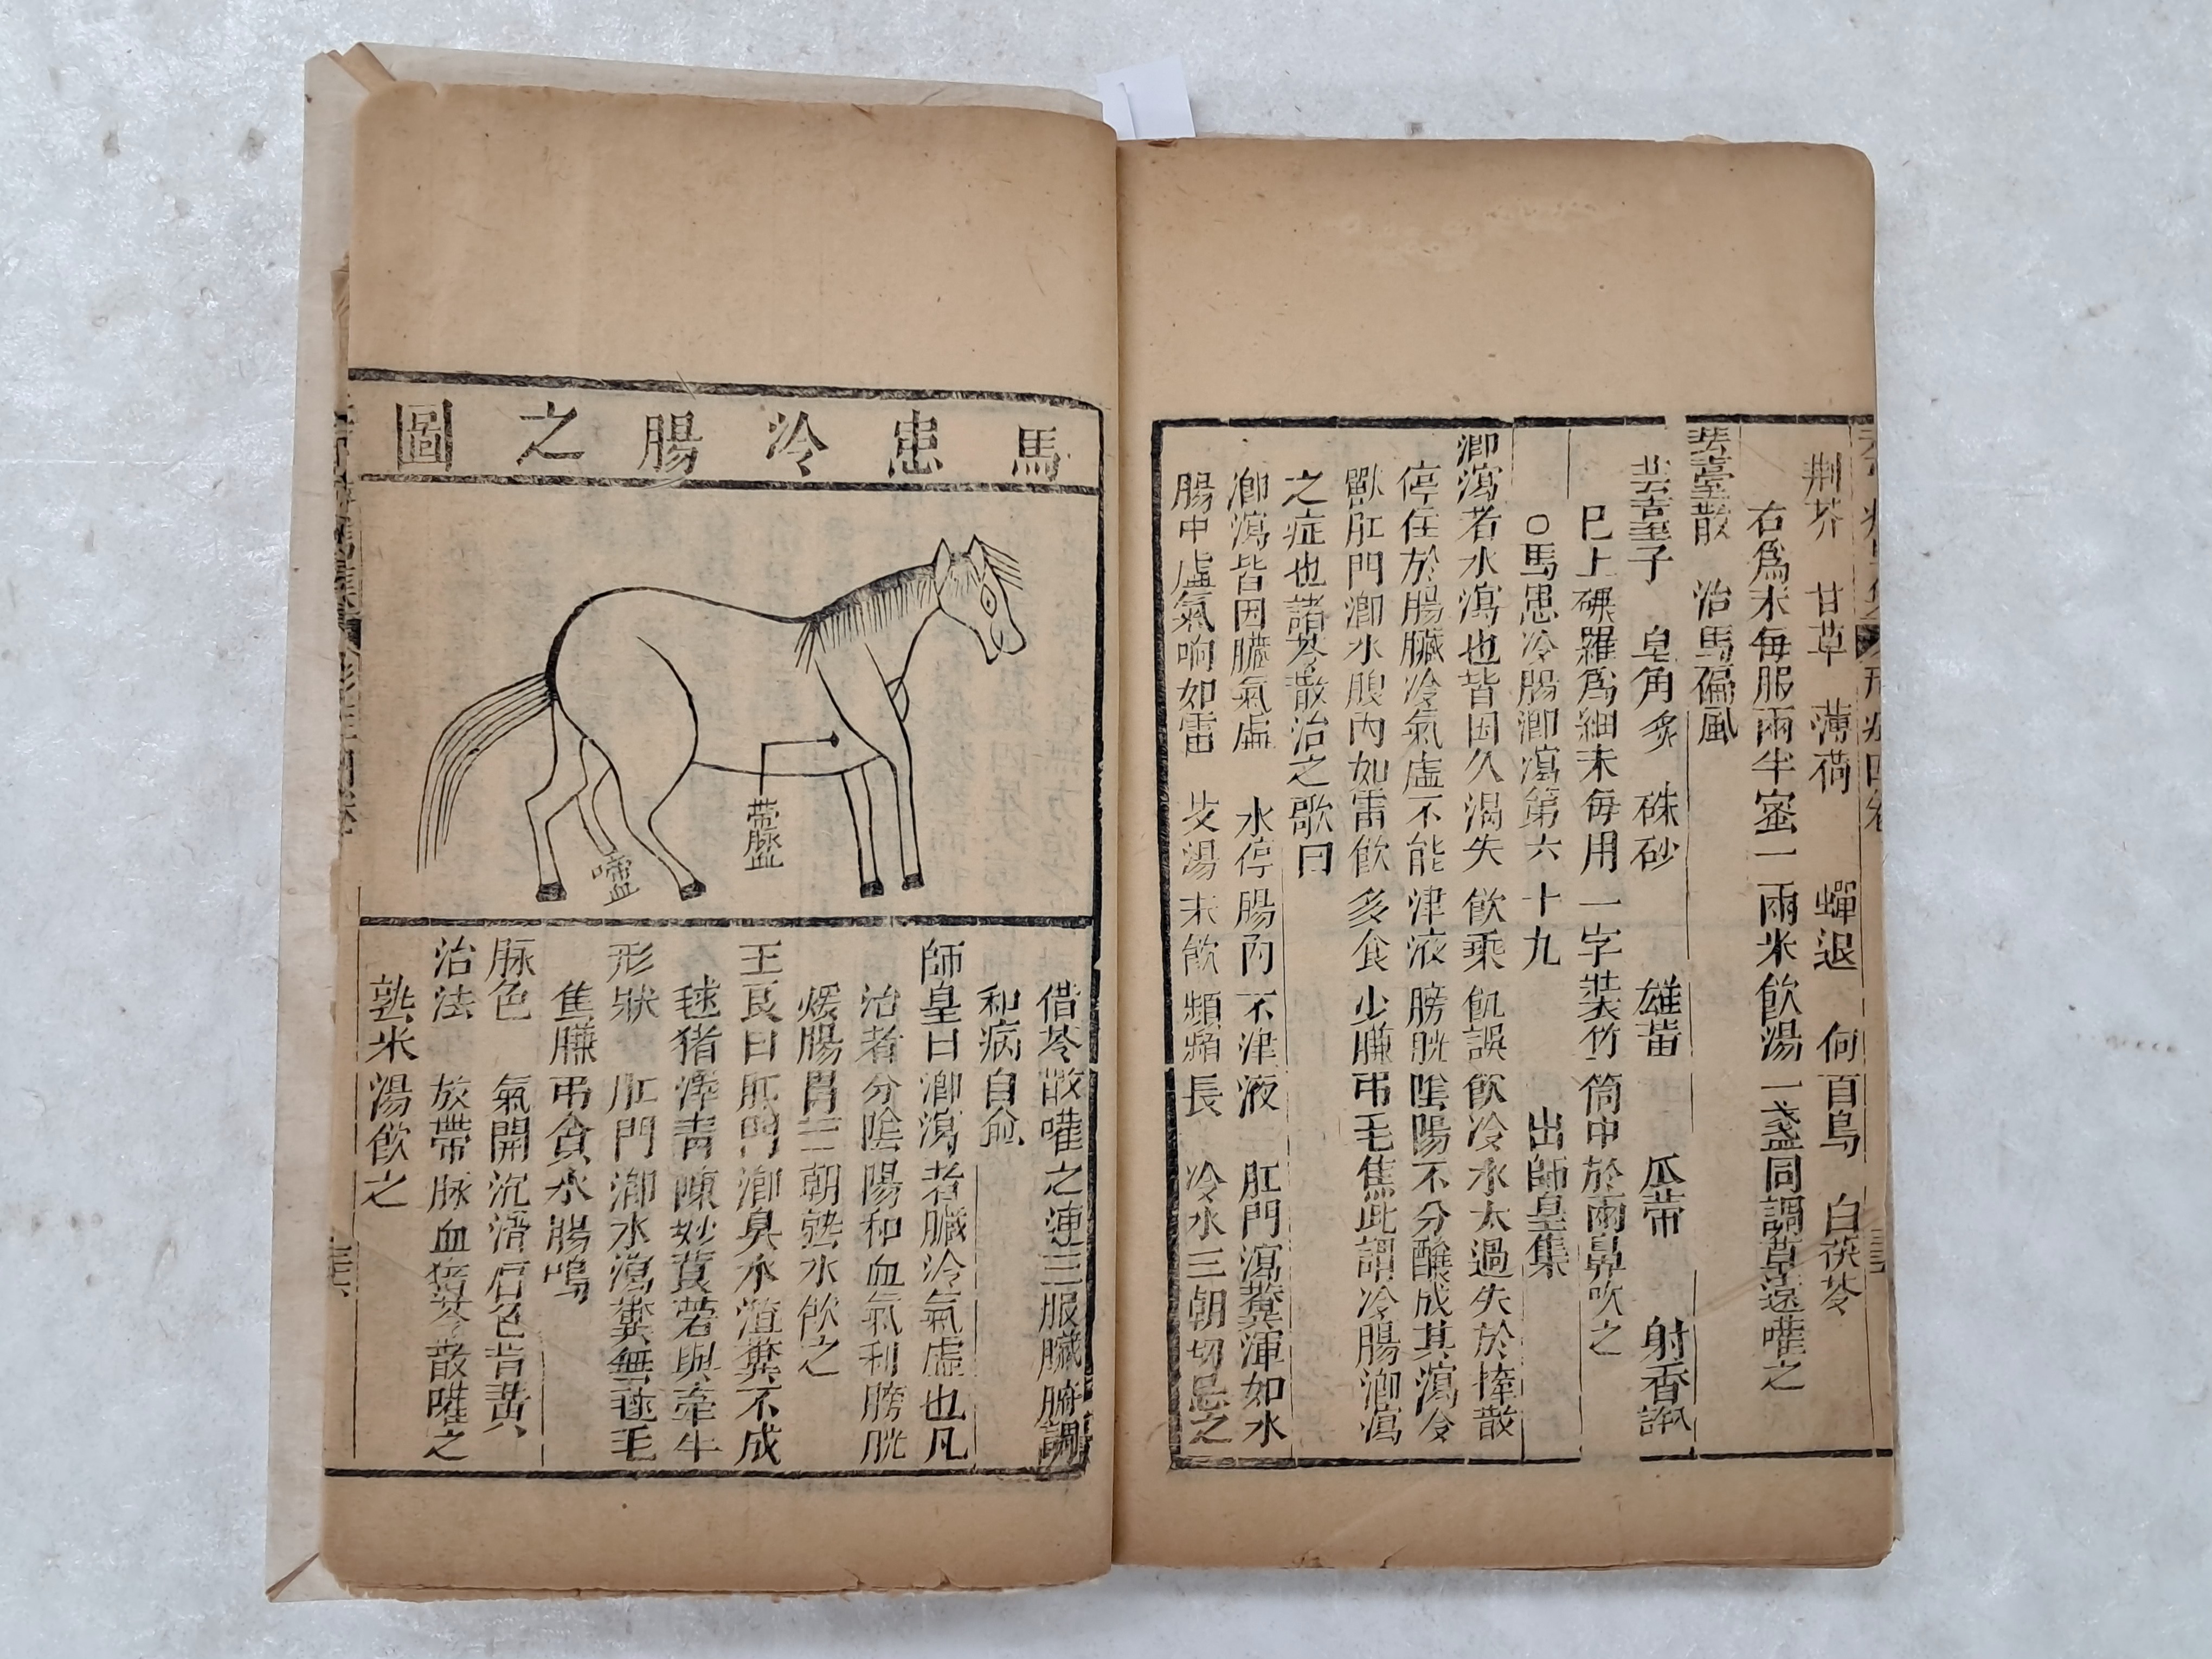 荆芥 甘草 薄荷 蟬退 何首烏 白茯苓
右爲末每服兩半蜜一兩米飲湯一盞同調草遠嚾之
芸臺散 治馬偏風
芸臺子 皂角炙 硃砂 雄黃 瓜蒂 射香
已上碾羅爲細末每用一字裝竹筒中於兩鼻吹之
○馬患冷腸㵼瀉第六十九 出師皇集
㵼瀉者水瀉也皆因久渴失飲乘飢誤飲冷水太過失於捧散
停住於腸臟冷氣虛不能津液膀胱陰陽不分釀成其瀉令
獸肛門㵼水腹內如雷飲多食少臁弔毛焦此謂冷腸㵼瀉
之症也諸苓散治之歌曰
㵼瀉皆因臟氣虛 水停腸內不津液 肛門瀉糞渾如水
腸中虛氣响如雷 艾湯末飲頻頻長 冷水三朝切忌之
馬患冷腸之圖
帶脉血
啼血
借苓散嚾之連三服臟腑調
和病自愈
師皇曰㵼瀉者臟冷氣虛也凡
治者分陰陽和血氣利膀胱
煖腸胃三朝熱水飲之
王良曰肛門㵼臭水渣糞不成
毬猪澤靑陳妙蓂著與牽牛
形狀 肛門㵼水瀉糞無毬毛
焦臁弔貪水腸鳴
脉色 氣開沉濇唇色皆黃
治法 放帶脉血猪苓散嚾之
熱米湯飲之